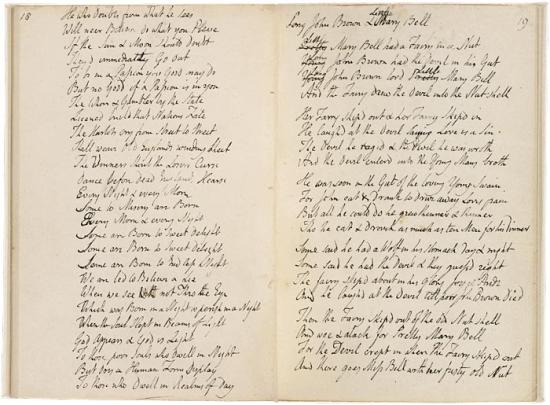 18
He who Doubts from what he sees
Will neer Believe do what you Please
If the Sun & Moon should doubt
Theyd immediately Go out
To be in a Passion you Good may do
But no Good if a Passion is in you
The Whore & Gambler by the State
Licencd build that Nations Fate
The Harlots cry from Street to Street
Shall weave Old Englands winding Sheet
The Winners Shout the Losers Curse
Dance before dead Englands Hearse
Every Night & every Morn
Some to Misery are Born
Every Morn & every Night
Some are Born to sweet delight
Some are Born to sweet delight
Some are Born to Endless Night
We are led to Believe a Lie
When we see not Thro the Eye
Which was Born in a Night to perish in a Night
When the Soul Slept in Beams of Light
God Appears & God is Light
To those poor Souls who dwell in Night
But does a Human Form Display
To those who Dwell in Realms of Day
19
Long John Brown & Little Mary Bell
Little Mary Bell had a Fairy in a Nut
Long John Brown had the Devil in his Gut
Long John Brown lovd Little Mary Bell
And the Fairy drew the Devil into the Nut-shell
Her Fairy Skipd out & her Fairy Skipd in
He laughd at the Devil saying Love is a Sin
The Devil he raged & the Devil he was wroth
And the Devil enterd into the Young Mans broth
He was soon in the Gut of the loving Young Swain
For John eat & drank to drive away Loves pain
But all he could do he grew thinner & thinner
Tho he eat & drank as much as ten Men for his dinner
Some said he had a Wolf in his stomach day & night
Some said he had the Devil & they guessd right
The fairy skipd about in his Glory Joy & Pride
And he laughd at the Devil till poor John Brown Died
Then the Fairy skipd out of the old Nut shell
And woe & alack for Pretty Mary Bell
For the Devil crept in when The Fairy skipd out
And there goes Miss Bell with her fusty old Nut